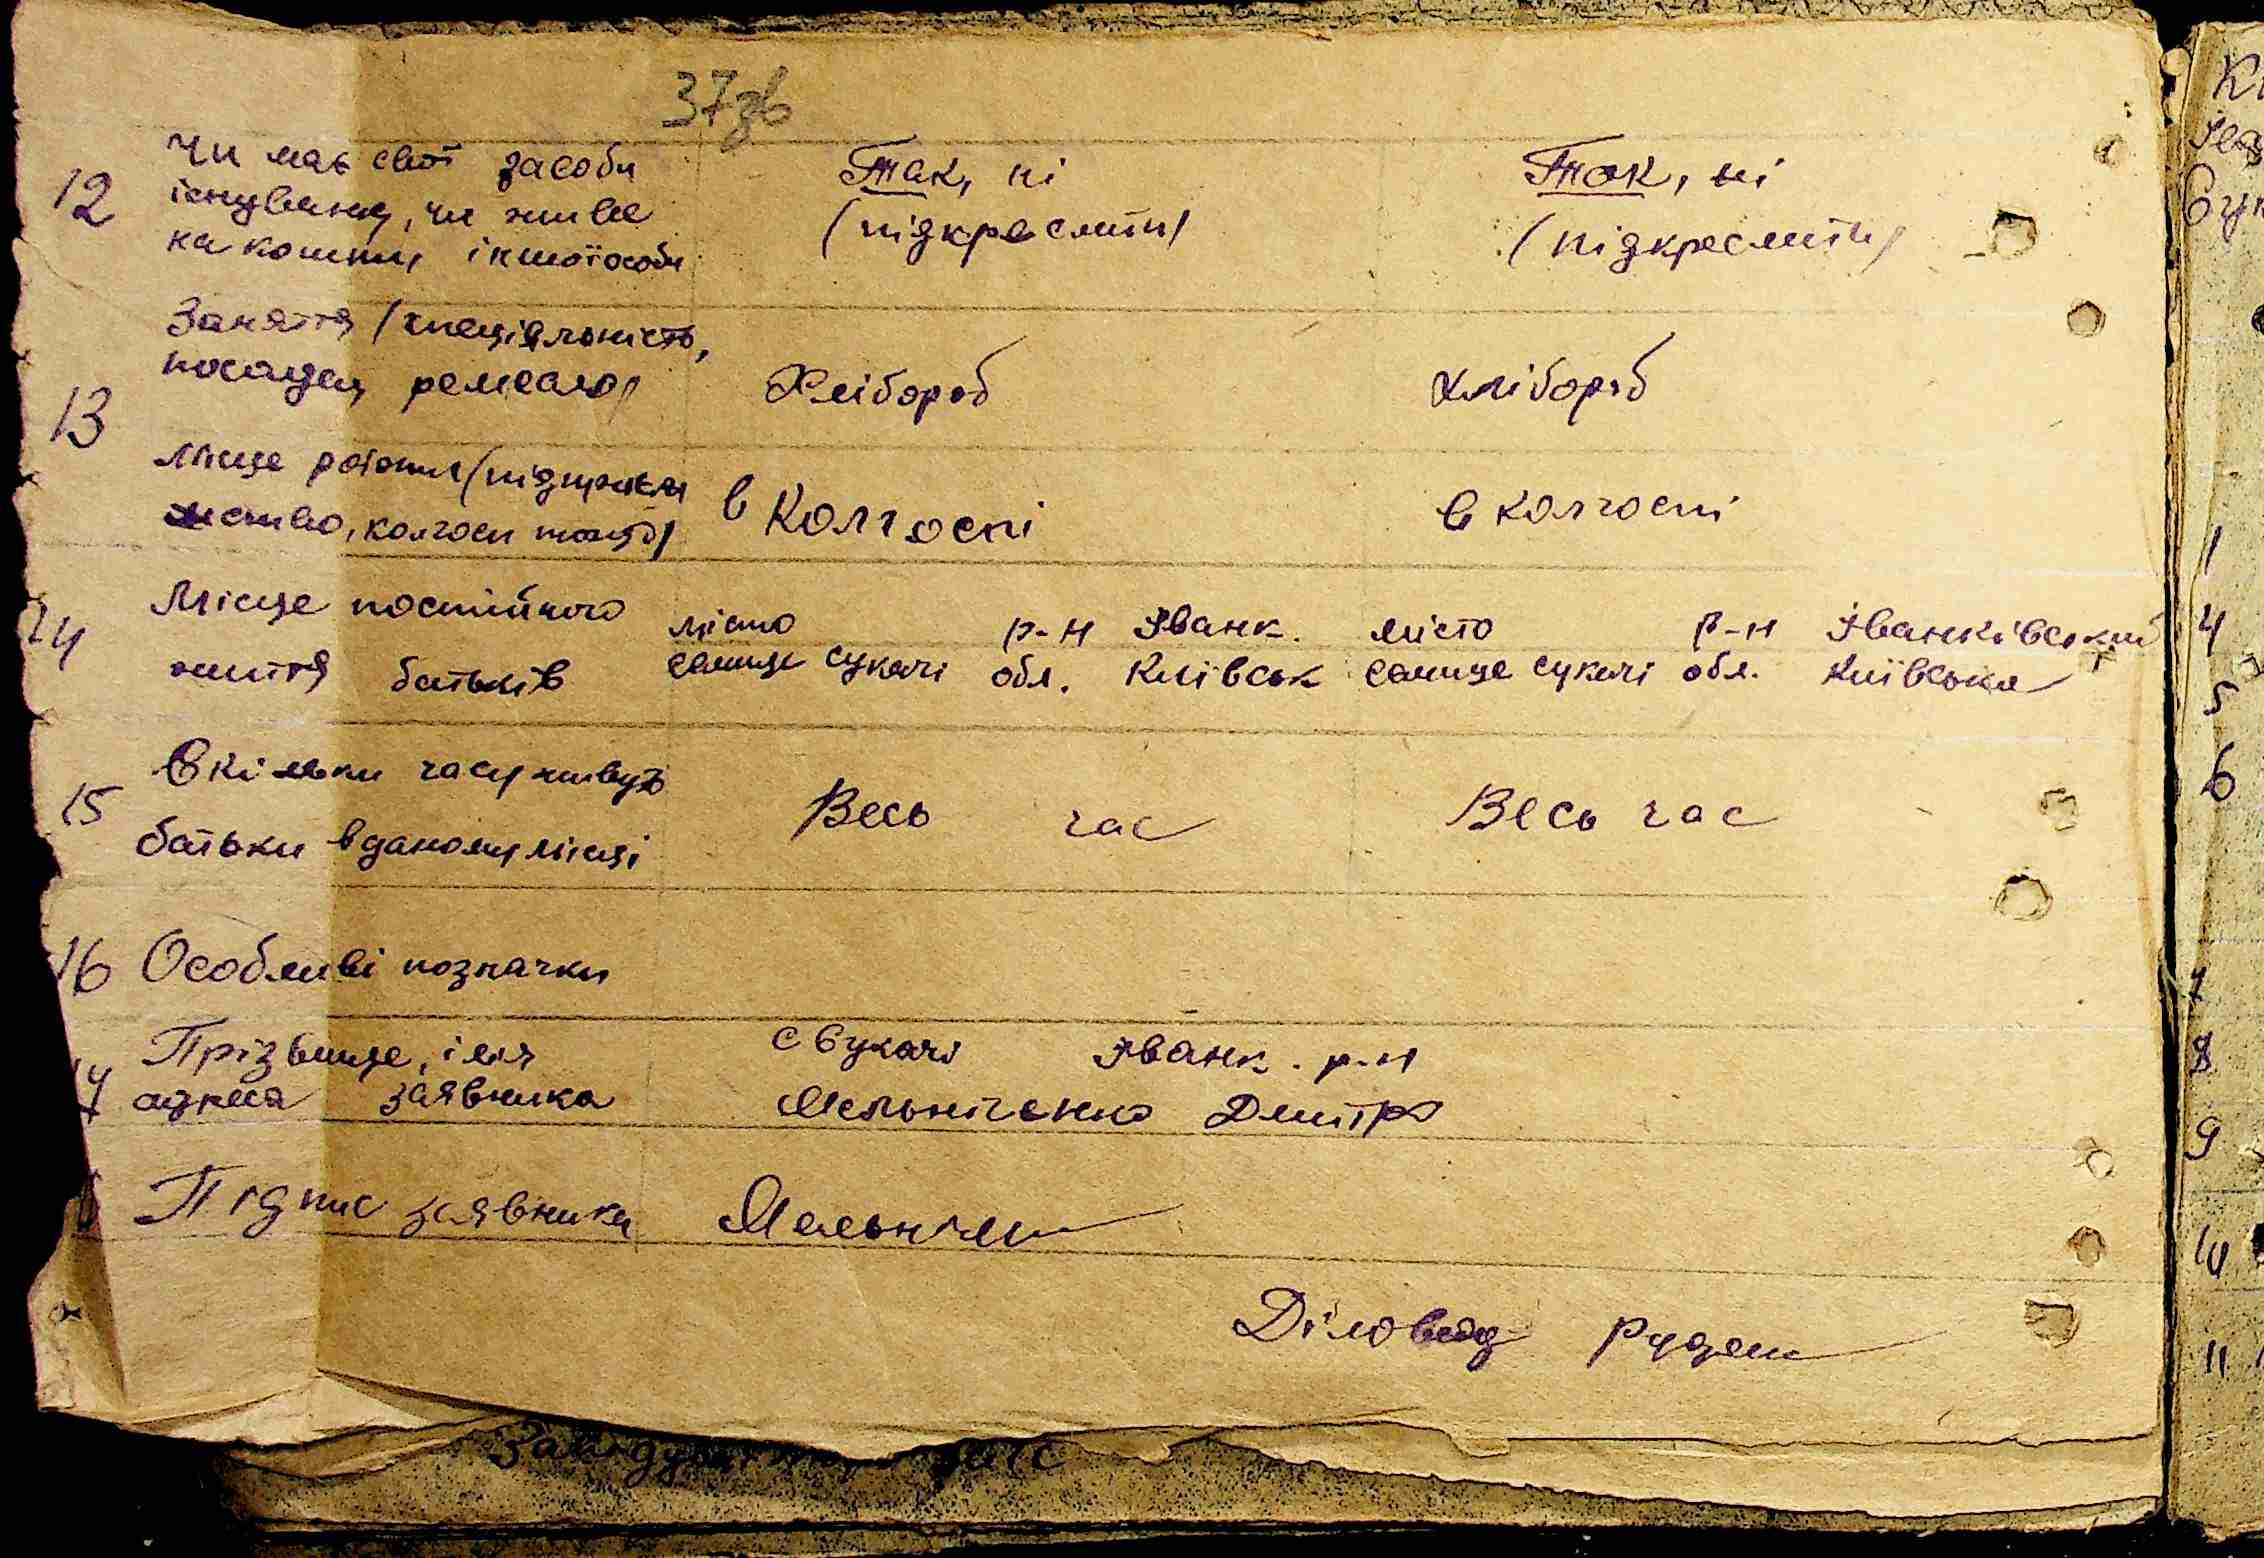 37зв
12 Чи має свої засоби Так, ні Так, ні
існування, чи живе (підкреслити) (підкреслити)
на кошти іншої особи
13 Заняття (спеціальність,
посада, ремесло) Хлібороб хлібороб
Місце роботи (підприєм
мство, колгосп тощо) в Колгоспі в колгоспі
14 Місце постійного місто р-н Іванк. місто р-н Іванківський
життя батьків селище сукачі обл. Київськ селище сукачі обл. Київська
15 Скільки часу живуть Весь час Весь час
батьки в даному місці
16 Особливі позначки
17 Прізвище, імя с Сукачі Іванк. р-н
адреса заявника Мельніченко Дмитро
Підпис заявника Мельніч
Діловод Руден
1
4
5
6
7
8
9
10
11